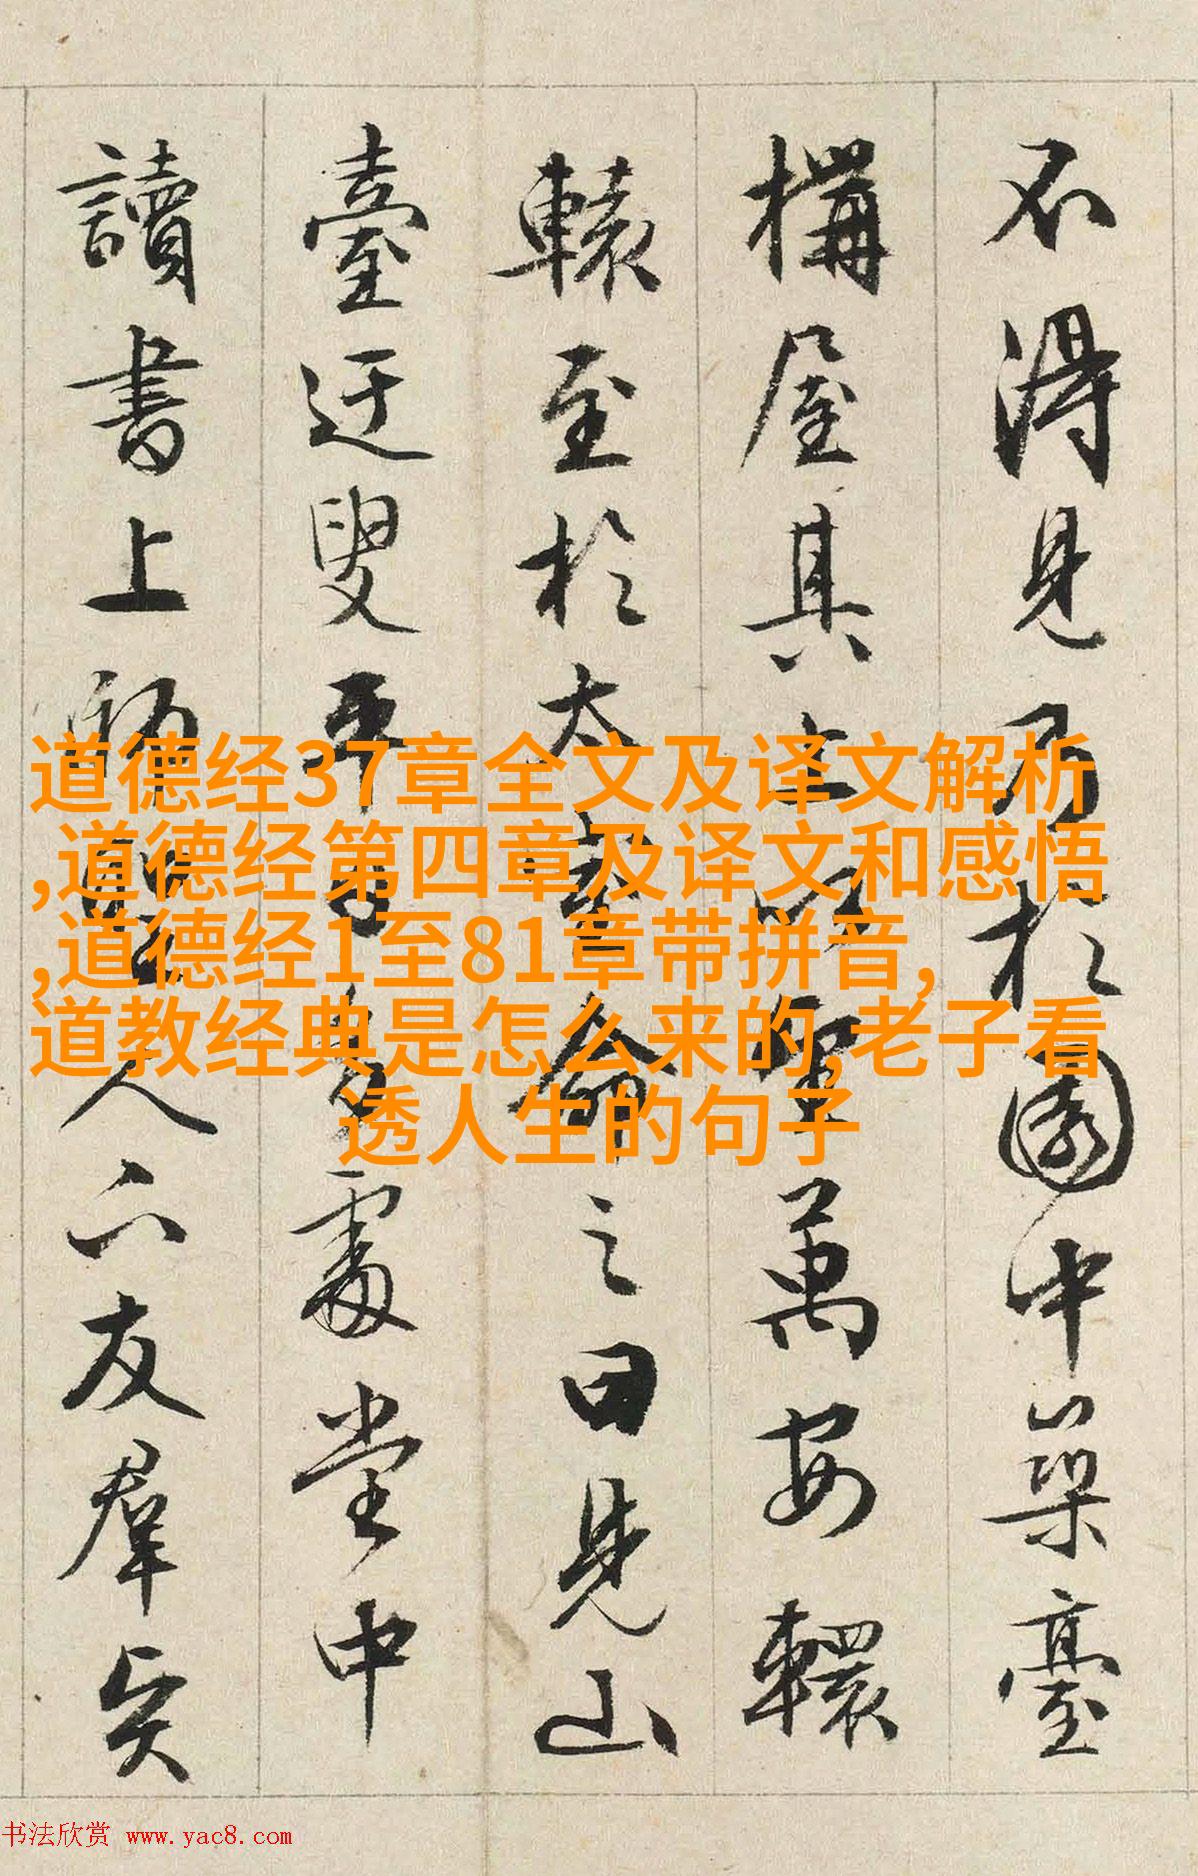 不得見乃於園中築臺
構屋其上以望萬安轘
轅至於太室命之曰見山
臺迂叟平日多處堂中
讀書上師聖人下友羣
道德经37章全文及译文解析
,道德经第四章及译文和感悟
,道德经1至81章带拼音,
道教经典是怎么来的,老子看
透人生的句子
书法欣赏 www.yac8.com